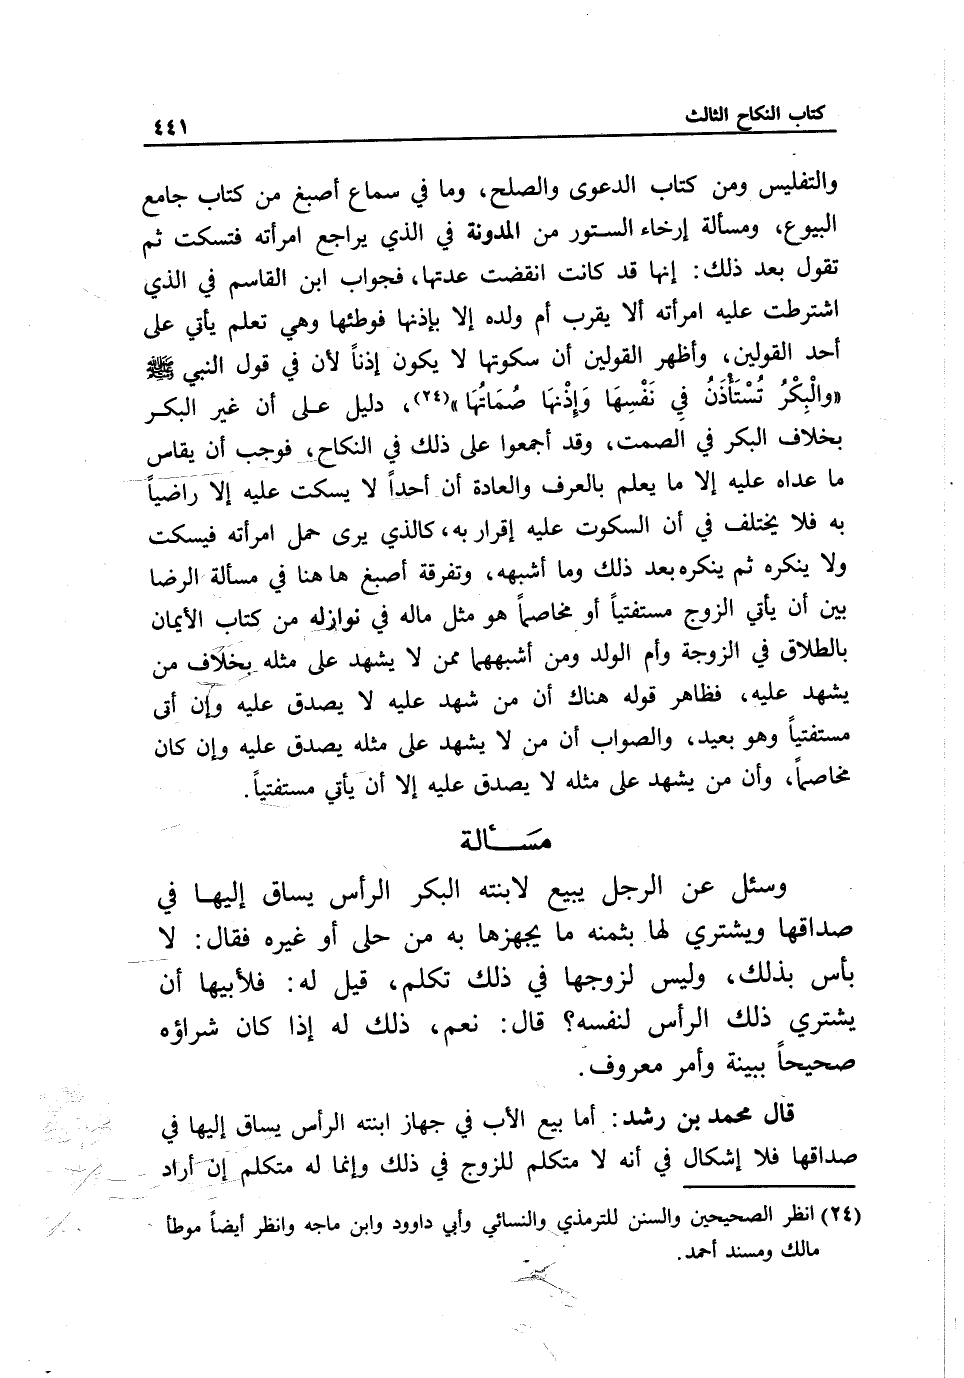 كتاب النكاح الثالث
٤٤١
والتفليس ومن كتاب الدعوى والصلح، وما في سماع أصبغ من كتاب جامع
البيوع، ومسألة إرخاء الستور من المدونة في الذي يراجع امرأته فتسكت ثم
تقول بعد ذلك: إنها قد كانت انقضت عدتها، فجواب ابن القاسم في الذي
اشترطت عليه امرأته ألا يقرب أم ولده إلا بإذنها فوطئها وهي تعلم يأتي على
أحد القولين، وأظهر القولين أن سكوتها لا يكون إذناً لأن في قول النبي ﷺ
«والْبِكْرُ تُسْتَأْذَنُ فِي نَفْسِهَا وَإِذْنهَا صُمَاتُهَا»(٢٤)، دليل على أن غير البكر
بخلاف البكر في الصمت، وقد أجمعوا على ذلك في النكاح، فوجب أن يقاس
ما عداه عليه إلا ما يعلم بالعرف والعادة أن أحداً لا يسكت عليه إلا راضياً
به فلا يختلف في أن السكوت عليه إقرار به، كالذي يرى حمل امرأته فيسكت
ولا ينكره ثم ينكره بعد ذلك وما أشبهه، وتفرقة أصبغ ها هنا في مسألة الرضا
بين أن يأتي الزوج مستفتياً أو مخاصماً هو مثل ماله في نوازله من كتاب الأيمان
بالطلاق في الزوجة وأم الولد ومن أشبههما ممن لا يشهد على مثله بخلاف من
يشهد عليه، فظاهر قوله هناك أن من شهد عليه لا يصدق عليه وإن أتى
مستفتياً وهو بعيد، والصواب أن من لا يشهد على مثله يصدق عليه وإن كان
مخاصماً، وأن من يشهد على مثله لا يصدق عليه إلا أن يأتي مستفتياً.
مَسْـأَلة
وسئل عن الرجل يبيع لابنته البكر الرأس يساق إليها في
صداقها ويشتري لها بثمنه ما يجهزها به من حلى أو غيره فقال: لا
بأس بذلك، وليس لزوجها في ذلك تكلم، قيل له: فلأبيها أن
يشتري ذلك الرأس لنفسه؟ قال: نعم، ذلك له إذا كان شراؤه
صحيحاً ببينة وأمر معروف.
قال محمد بن رشد: أما بيع الأب في جهاز ابنته الرأس يساق إليها في
صداقها فلا إشكال في أنه لا متكلم للزوج في ذلك وإنما له متكلم إن أراد
(٢٤) انظر الصحيحين والسنن للترمذي والنسائي وأبي داوود وابن ماجه وانظر أيضاً موطأ
مالك ومسند أحمد.